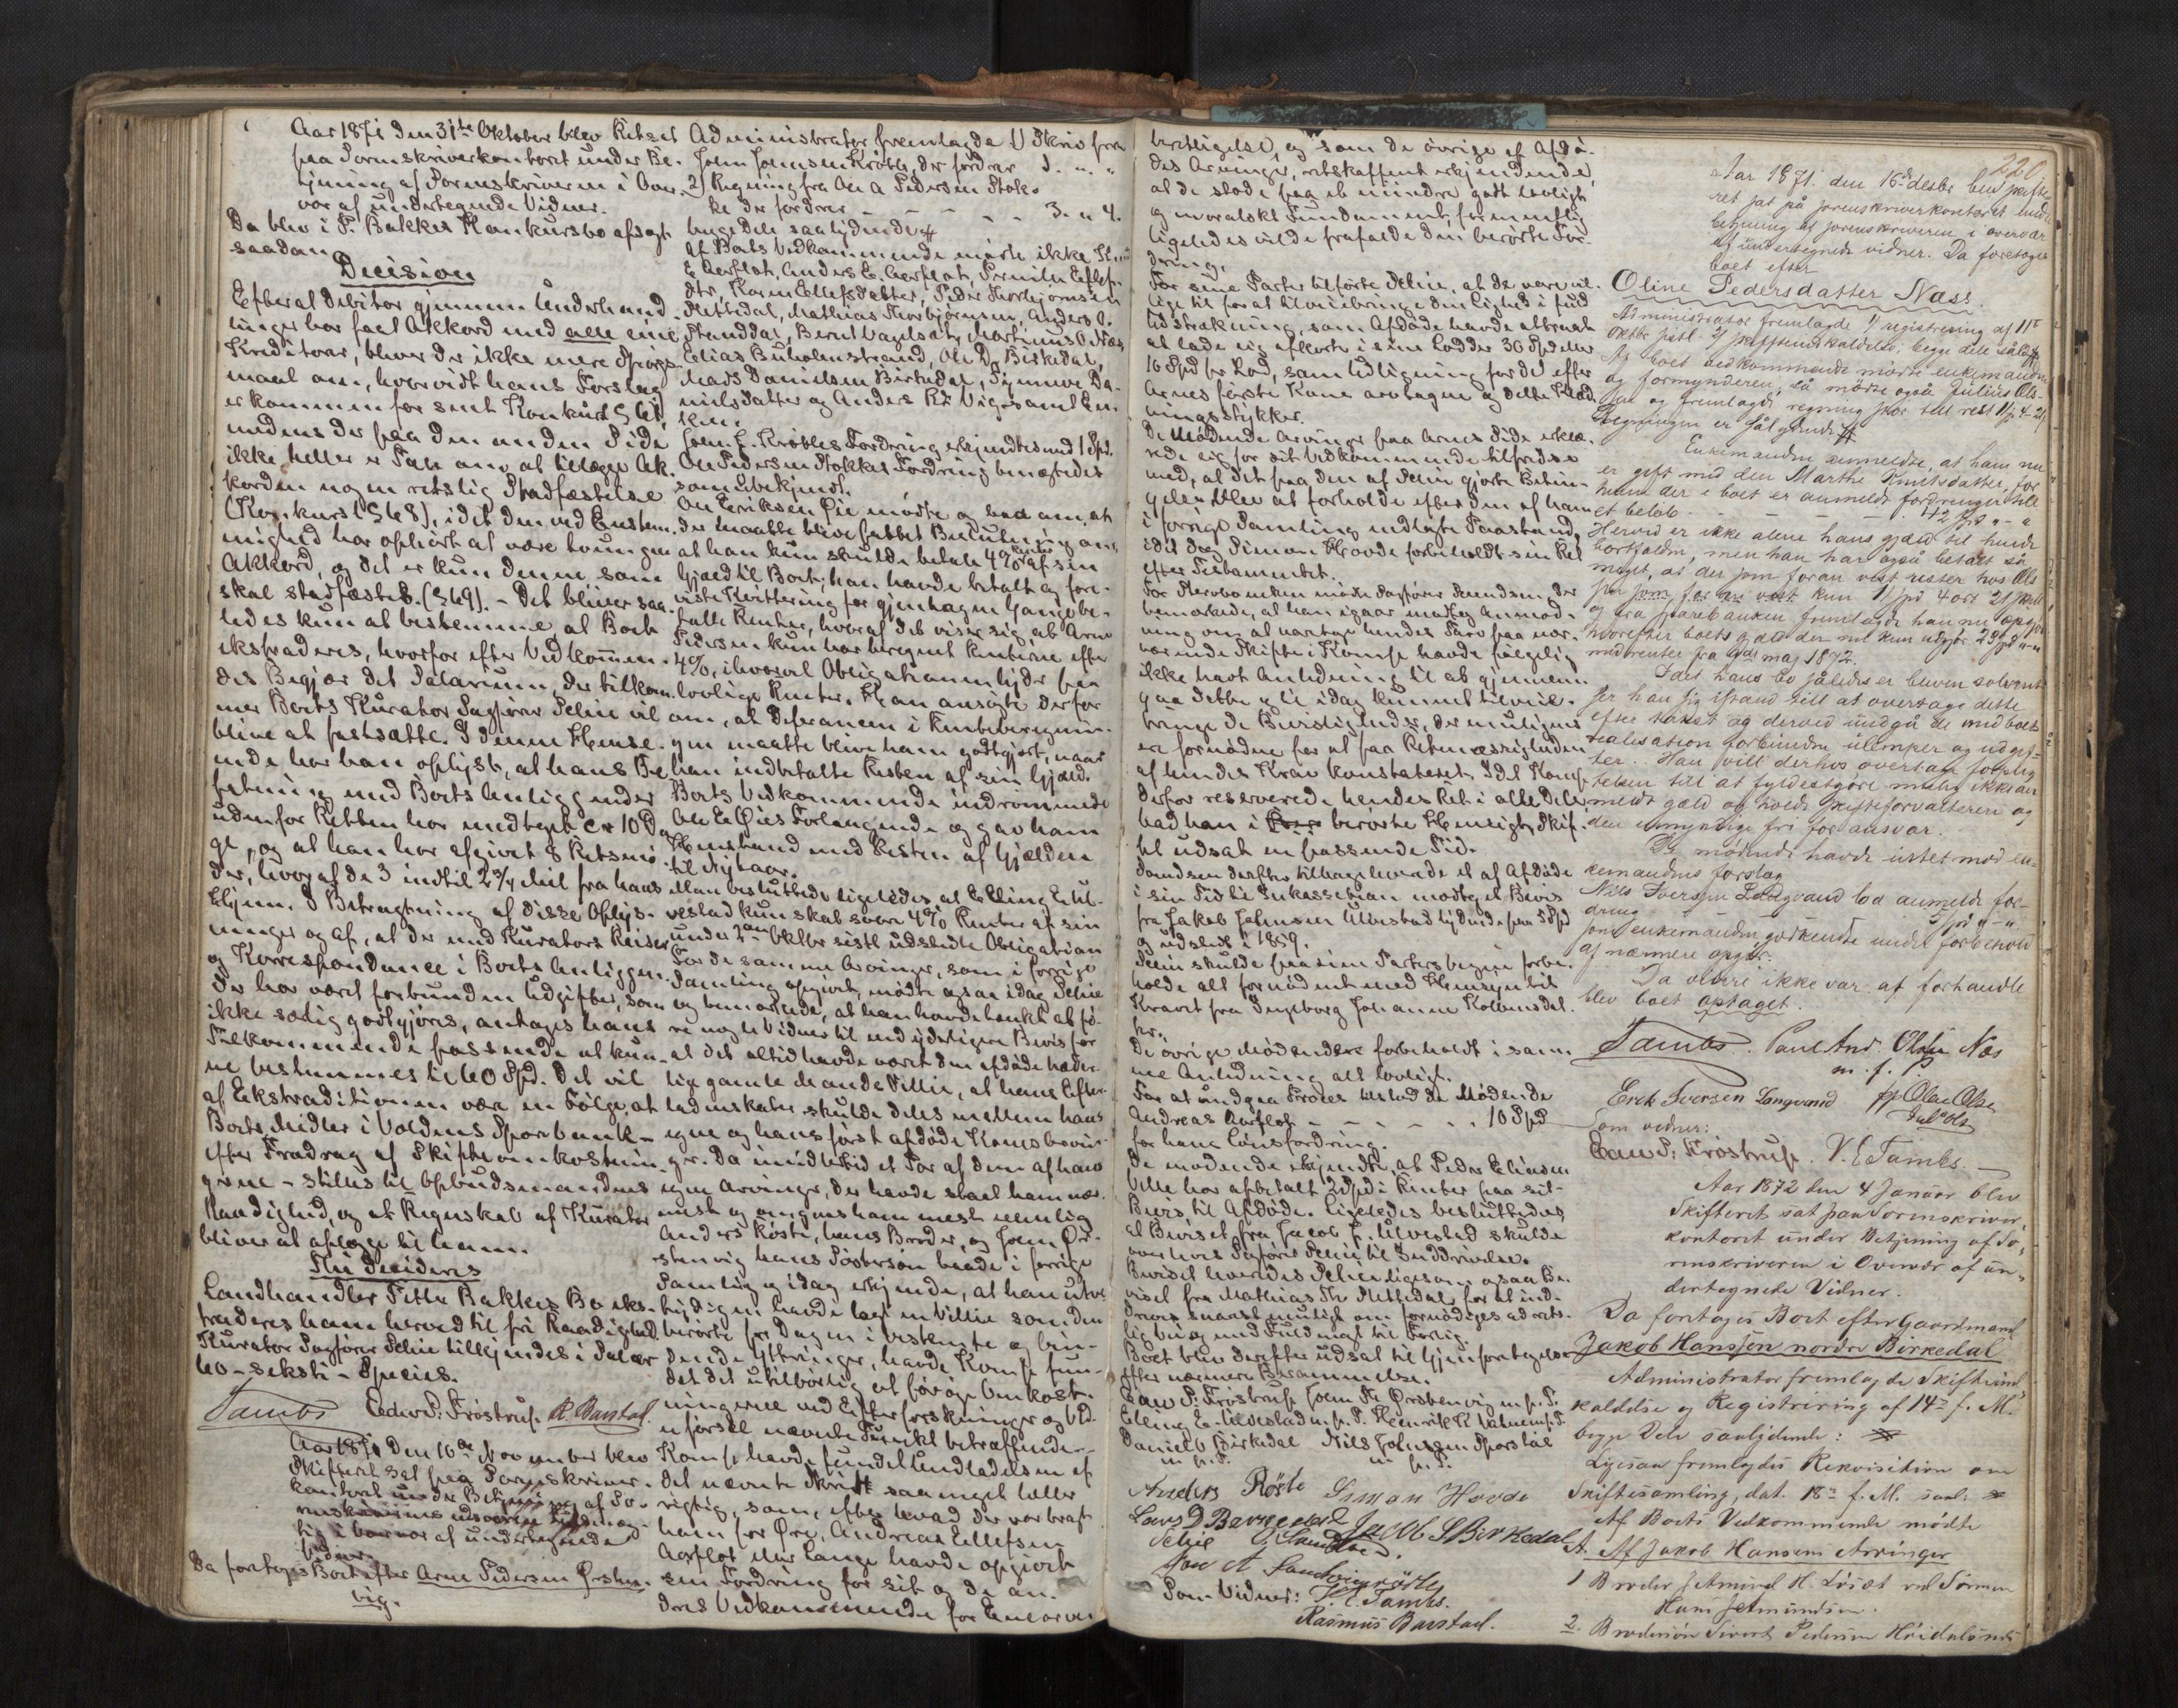 Aar 1871 den 31te Oktober blev Retset
paa Sorenskriverkontoret under Be-
tjening af Sorenskriveren i Over-
vær af undertegnede Vidner.
Da blev i P. Bakkes Konkursbo afsagt
saadan
Decision
Efter at Debitor gjennem Underhand-
linger har faaet Akkord med alle sine
Kreditorer, bliver der ikke mere Spørgs-
maal om, hvorvidt hans Forslag
er kommen for sent Konkursl §
medens der paa den anden Side
ikke heller er Tale om at tillægge Ak-
korden nogen retslig Stadfæstelse
(Konkursl § 68), idet den ved Enstem-
mighed har ophørt at være tvungen
Akkord, og det er kun denne som
skal stadfæstes. (§ 69). - Det bliver saa-
ledes kun at bestemme at Boet
ekstraderes, hvorfor efter Vedkommen-
des Begjær det Salarium, der tilkom-
mer Boets Kurator Sagfører Selie vil
blive at fastsætte. I denne Hense-
ende har han oplyst, at hans Be-
fatning med Boets Anliggender
udenfor Retten har medtaget ca 10 Da-
ge, og at han har afgivet 8 Retsmø-
der, hvoraf de 3 indtil 2 3/4 Mil fra hans
Hjem. I Betragtning af disse Oplys-
ninger og af, at der med Kurators Reiser
og Korrespondance i Boets Anliggen-
der har været forbunden Udgifter, som
ikke særlig godtgjøres, antages hans
Tilkommende passende at kun-
ne bestemmes til 60 Spd. Det vil
af Ekstraditionen være en Følge, at
Boets Midler i Voldens Sparebank -
efter Fradrag af Skifteomkostnin-
gerne - stilles til Opbudsmandens
Raadighed, og at Regnskab af Kurator
bliver at aflægge til ham.
Thi Decideres
Landhandler Petter Bakkes Bo eks-
traderes ham herved til fri Raadighed
Kurator Sagfører Selie tillkjendes i Salær
60 - seksti - Species.
Tambs Edw P. Frøstrup. R. Barstad.
Aar 1871 den 16de November blev
Skifteret sat paa Sorenskriver-
kontoret under Betjening af So-
i Overvær af undertegnede
Vidner.
Da foretoges Boet efter Arne Pedersen Ørsten-
vig.
Administrator fremlagde 1) Skriv fra
John Johnsen Krøble, der fordrer 1. " "
2) Regning fra Ole A Pedersen Stok-
ke der fordrer - - - - - 3. " 4.
begge dele saalydende #
Af Boets Vedkommende mødte ikke
E Aarflot, Anders E. Aarflot, Pernille Ellefs-
dtr, Karen Ellefsdatter, Peder Thorbjørnsen
Mettedal, Mathias Thorbjørnsen, Anders O.
Standdal, Bernt Vagsæt, Martinus O Næs
Elias Buholmstrand, Ole D. Birkedal,
Mads Danielsen Birkedal, Synneve Da-
nielsdatter og Anders R. Vig samt En-
ken.
John J. Krøbles Fordring erkjendtes med 1 Spd.
Ole Pedersen Stokkes Fordring benægtedes
som ubekjendt.
Ole Eriksen Øie mødte og bad om, at
der maatte blive fattet Beslutning om,
at han kun skulde betale 4 % Renter af sin
Gjæld til Boet; han havde betalt og fore-
viste Kvittering for gjentagen Gange be-
talte Renter, hvoraf det viser sig, at Arne
Pedersen kun har beregnet Renterne efter
4 %, ihvorvel Obligationen lyder paa
lovlige Renter. Han ansøgte derfor
om, at Diferancen i Renteberegnin-
gen maatte blive ham godtgjort, naar
han indbetalte Resten af sin Gjæld.
Boets Vedkommende indrømmede
Ole E Øies Forlangende og gav ham
Henstand med Resten af Gjælden
til Nytaar.
Man besluttede ligeledes at Elling E Ul-
vestad kun skal svare 4 % Renter af sin
under 2den Oktbr sistl udstedte Obligation
For de samme Arvinger, som i forrige
Samling opgivet, mødte ogsaa idag Selie
og bemærkede, at han havde tænkt at fø-
re nogle Vidner til end yderligere Bevis for
at det altid havde været den afdøde hæder-
lige gamle Mands Villie, at hans Efter-
ladenskaber skulde deles mellem hans
egne og hans først afdøde Kones Arvin-
ger. Da imidlertid et Par af dem af hans
egne Arvinger, der havde staaet ham nær-
mest og omgaaes ham mest nemlig
Anders Røste, hans Broder, og John Ør-
stenvig hans Søstersøn baade i forrige
Samling og idag erkjende, at han utve-
tydigen havde lagt en Villie som den
berørte for Dagen i bestemte og bin-
dende Yttringer, havde Komp fun-
det det utilbørlig at forøge Omkost-
ningerne ved Efterforskninger og Vid-
neførsel nævnte Punkt betræffende.
Komp havde fundet Undladelsen af
det nævnte Skridt saa meget heller
rigtig, som, efter hvad der var bragt
ham for Øre, Andreas Ellefsen
Aarflot eller Lange havde opgivet
sin Fordring for sit og de an-
dres Vedkommende for Enearve-
berettigelse, og som de øvrige af Afdø-
des Arvinger, retskaffent erkjendende,
at de stode paa et mindre godt lovligt
og moralskt Fundament, formentlig
ligeledes vilde frafalde den berørte For-
dring.
For sine Parter tilførte Selie, at de vare vil-
lige til for at tilveiebringe den Lighed i fuld
Udstrækning, som Afdøde havde attraaet
at lade sig afkorte i sine Lodder 30 Spd eller
16 Spd pr Lod, som Udligning for det efter
Arnes første Kone arvtagne og delte Klæd-
ningsstykker.
De Mødende Arvinger paa Arnes Side erklæ-
rede sig for sit Vedkommende tilfredse
med, at det paa den af Selie gjorte Betin-
gelse blev at forholde efter den af ham
i forrige Samling nedlagte Paastand,
idet dog Simon Hovde forbeholdt sin Ret
efter Testamentet.
For Merebo enken mødte Sagfører Saudsen, der
bemærkede, at han igaar modtog Anmod-
ning om at varetage hendes Tarv paa nær-
værende Skifte i Komp havde følgelig
ikke havt Anledning til at gjennem-
gaa dette og ei idag kunnet tilveie-
bringe de Bevisligheder, der muligens
er fornødne for at faa Retmæssigheden
af hendes Krav konstateret. Idet Komp
derfor reserverede hendes Ret i alle Dele
bad han i berørte Hensigt Skif-
tet udsat en passende Tid.
Saudsen derefter tilbageleverede et af Afdøde
i sin Tid til Inkassation modtaget Bevis
fra Jakob Johnsen Ulvestad lydende paa 5 Spd
og udstedt i 1859.
Selie skulde paa sine Parters vegne forbe-
holde alt fornødent med Hensyn til
Kravet fra Ingeborg Johanne Kolbeinsdat-
ter.
De øvrige Mødende forbeholdt i sam-
me Anledning alt lovligt.
For at undgaa Proces tilstod de Mødende
Andreas Aarflot - - - - - 10 Spd
for hans Lønsfordring.
De mødende erkjendte, at Peder Eliasen
Velle har afbetalt 2 Spd i Renter paa sit
Bevis til Afdøde. Ligeledes besluttedes
at Beviset fra Jacob J. Ulvestad skulde
overleveres Sagfører Selie til Inddrivelse.
Beviset leveredes Selie ligesom ogsaa Be-
viset fra Mathias Th Mettedal, for at ind-
drives snarest muligt om fornødiges ad rets-
lig Vei og med Fuldmagt til Forlig.
Boet blev derefter udsat til Gjenforetagelse
efter nærmere Berammelse.
Edw P. Frøstrup John Th Ørstenvig m.p.P.
Elling E. Ulvestad m.p.P. Henrik K Vatne m.p.P.
Daniel O Birkedal Nils Johnsen Sporstøl
m.p.P. m.p.P.
Anders Røste Simon Hovde
Lars D Berkedal Jacob S Birkedal
Selie O. Saudsen.
Jon A Sandvigen
Som Vidner: V. E. Tambs.
Rasmus Barstad.
220
Aar 1871. den 16de desbr blev skifte-
ret sat på sorenskriverkontoret under
betjening af sorenskriveren i overvær
af undertegnede vidner. Da foretoges
boet efter
Oline Pedersdatter Næss.
Administrator fremlagde 1/ registrering af 11te
oktbr sistl. 2/ skifteindkaldelse; begge dele sål #
Af boet vedkommende mødte enkemanden
og formynderen, så mødte også Julius Ols-
sen og fremlagde regning stor till rest 1 sp. 4 - 21
Regningen er sålydende #
Enkemanden anmeldte, at han nu
er gift med den Marthe Knutsdatter, for
hvem der i boet er anmeldt fordringer till
et beløb - - - - - - 42 spd " - "
Herved er ikke alene hans gjæld til hende
bortfalden, men han har også betalt så
meget, at der som foran vist rester hos Ols-
sen som før er vist kun 1 spd 4 ort 21 skill
og fra sparebanken fremlagde han nu opgør
hvorefter boets gæld der nu kun udgjør 29 spd "-"
med renter fra 9de maj 1872.
Idet hans bo således er bleven solvent
ser han sig istand till at overtage dette
efter takst og derved undgå de med boets
realisation forbundne ulemper og udgif-
ter. Han vill derhos overtage forplig-
telsen till at fyldestgøre mulig ikke an-
meldt gæld og holde skifteforvalteren og
den umyndige fri for ansvar.
De mødende havde intet mod en-
kemandens forslag
Nils Iversen Langvand lod anmelde for-
dring - - - - 5 spd " - "
som enkemanden godkendte under forbehold
af nærmere opgør.
Da videre ikke var at forhandle
blev boet optaget.
Tambs. Paul And. Olsen Næs
m. f. P
Erik Iversen Langvand pp Olae Olsen
Jul Ols
Som vidner:
Edw P. Frøstrup. V. E Tambs.
Aar 1872 den 4 Januar blev
Skifteret sat paa Sorenskriver-
kontoret under Betjening af So-
renskriveren i Overvær af un-
dertegnede Vidner.
Da foretoges Boet efter Gaardmand
Jakob Hanssen nordre Birkedal
Administrator fremlagde Skifteind-
kaldelse og Registrering af 14de f. M.
begge Dele saalydende: #
Ligesaa fremlagdes Rekvisition om
Skiftesamling, dat. 18de f. M. saal. #
Af Boets Vedkommende mødte
A. Af Jakob Hansens Arvinger
1 Broder Jetmund H. Løset ved Sønnen
Hans Jetmundsen.
2. Brodersøn Sivert Pedersen Hovdenakk